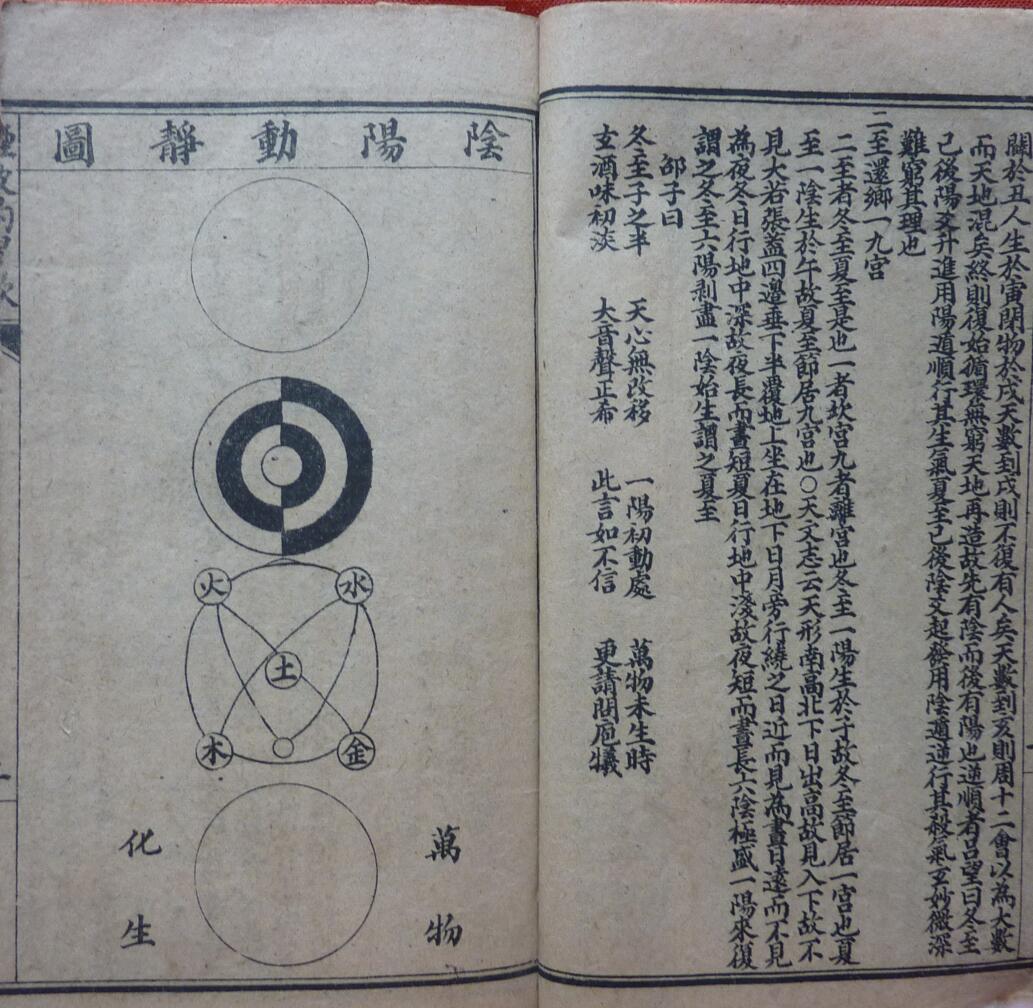 關於丑人生於寅閉物於戌天數到戌則不復有人矣天數到亥則周十二會以為大數
而天地混矣終則復始循環無窮天地再造故先有陰而後有陽也逆順者呂望曰冬至
已後陽爻升進用陽遁順行其生氣夏至已後陰爻起發用陰遁逆行其殺氣玄妙微深
難窮其理也
二至還鄉一九宮
二至者冬至夏至是也一者坎宮九者離宮也冬至一陽生於子故冬至節居一宮也夏
至一陰生於午故夏至節居九宮也○天文志云天形南高北下日出高故見入下故不
見大若張蓋四邊垂下半覆地上坐在地下日月旁行繞之日近而見為晝日遠而不見
為夜冬日行地中深故夜長而晝短夏日行地中淺故夜短而晝長六陰極盛一陽來復
謂之冬至六陽剥盡一陰始生謂之夏至
邵子曰
冬至子之半 天心無改移 一陽初動處 萬物未生時
玄酒味初淡 大音聲正希 此言如不信 更請問庖犧
陰陽動靜圖
火 水
土
木 金
萬物
化生